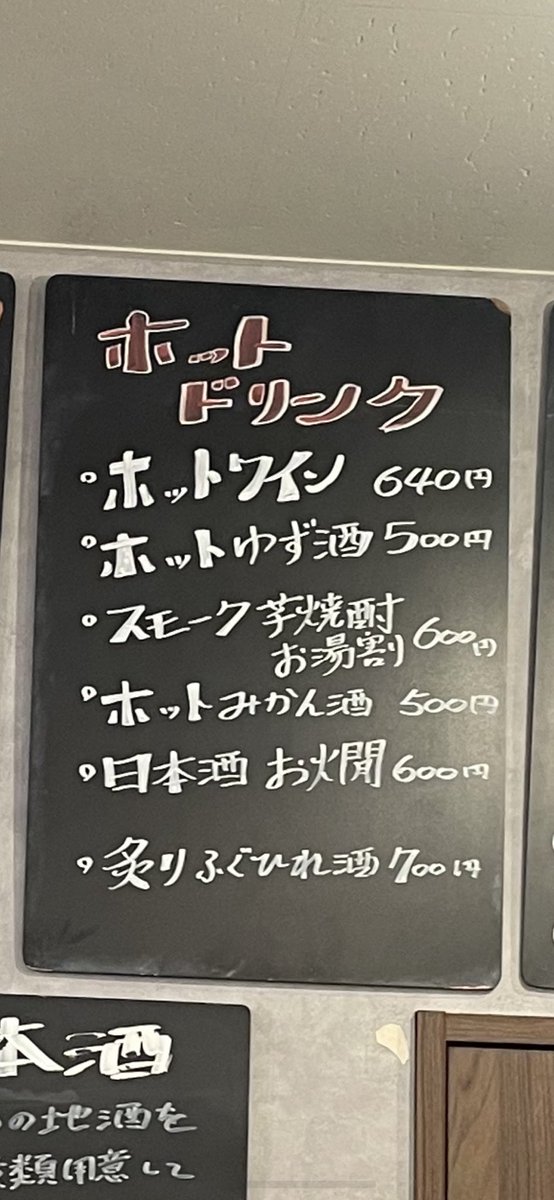 ホット
ドリンク
ホットワイン 640円
ホットゆず酒 500円
スモーク芋焼酎
お湯割り 600円
ホットみかん酒 500円
日本酒 お燗 600円
炙りふぐひれ酒 700円
本酒
の地酒を
類用意して